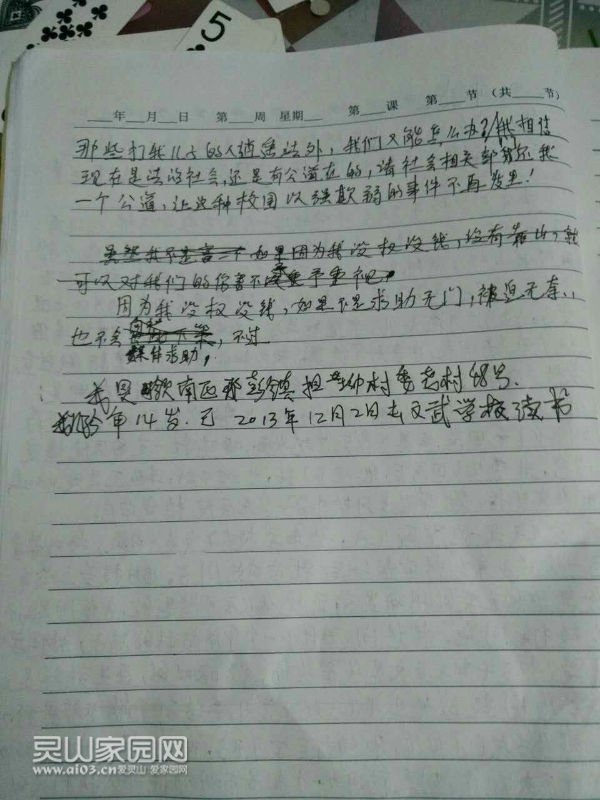 5
年 月 日 第 周 星期 第 课 第 节 (共 节)
那些打我儿子的人逍遥法外,我们又能怎么办?我相信
现在是法治社会,还是有公道在的,请社会相关部门还我
一个公道,让这种校园以强欺弱的事件不再发生!
如果因为我没权没钱,没有靠山,就
可以对我们的伤害不
因为我没权没钱,如果不是求助无门,被迫无奈,
也不会 不过
媒体求助,
我是钦南区那彭镇 村委 村68号
年14岁.于2013年12月2日去文武学校读书
灵山家园网
www.ai03.cn 爱灵山 爱家园网